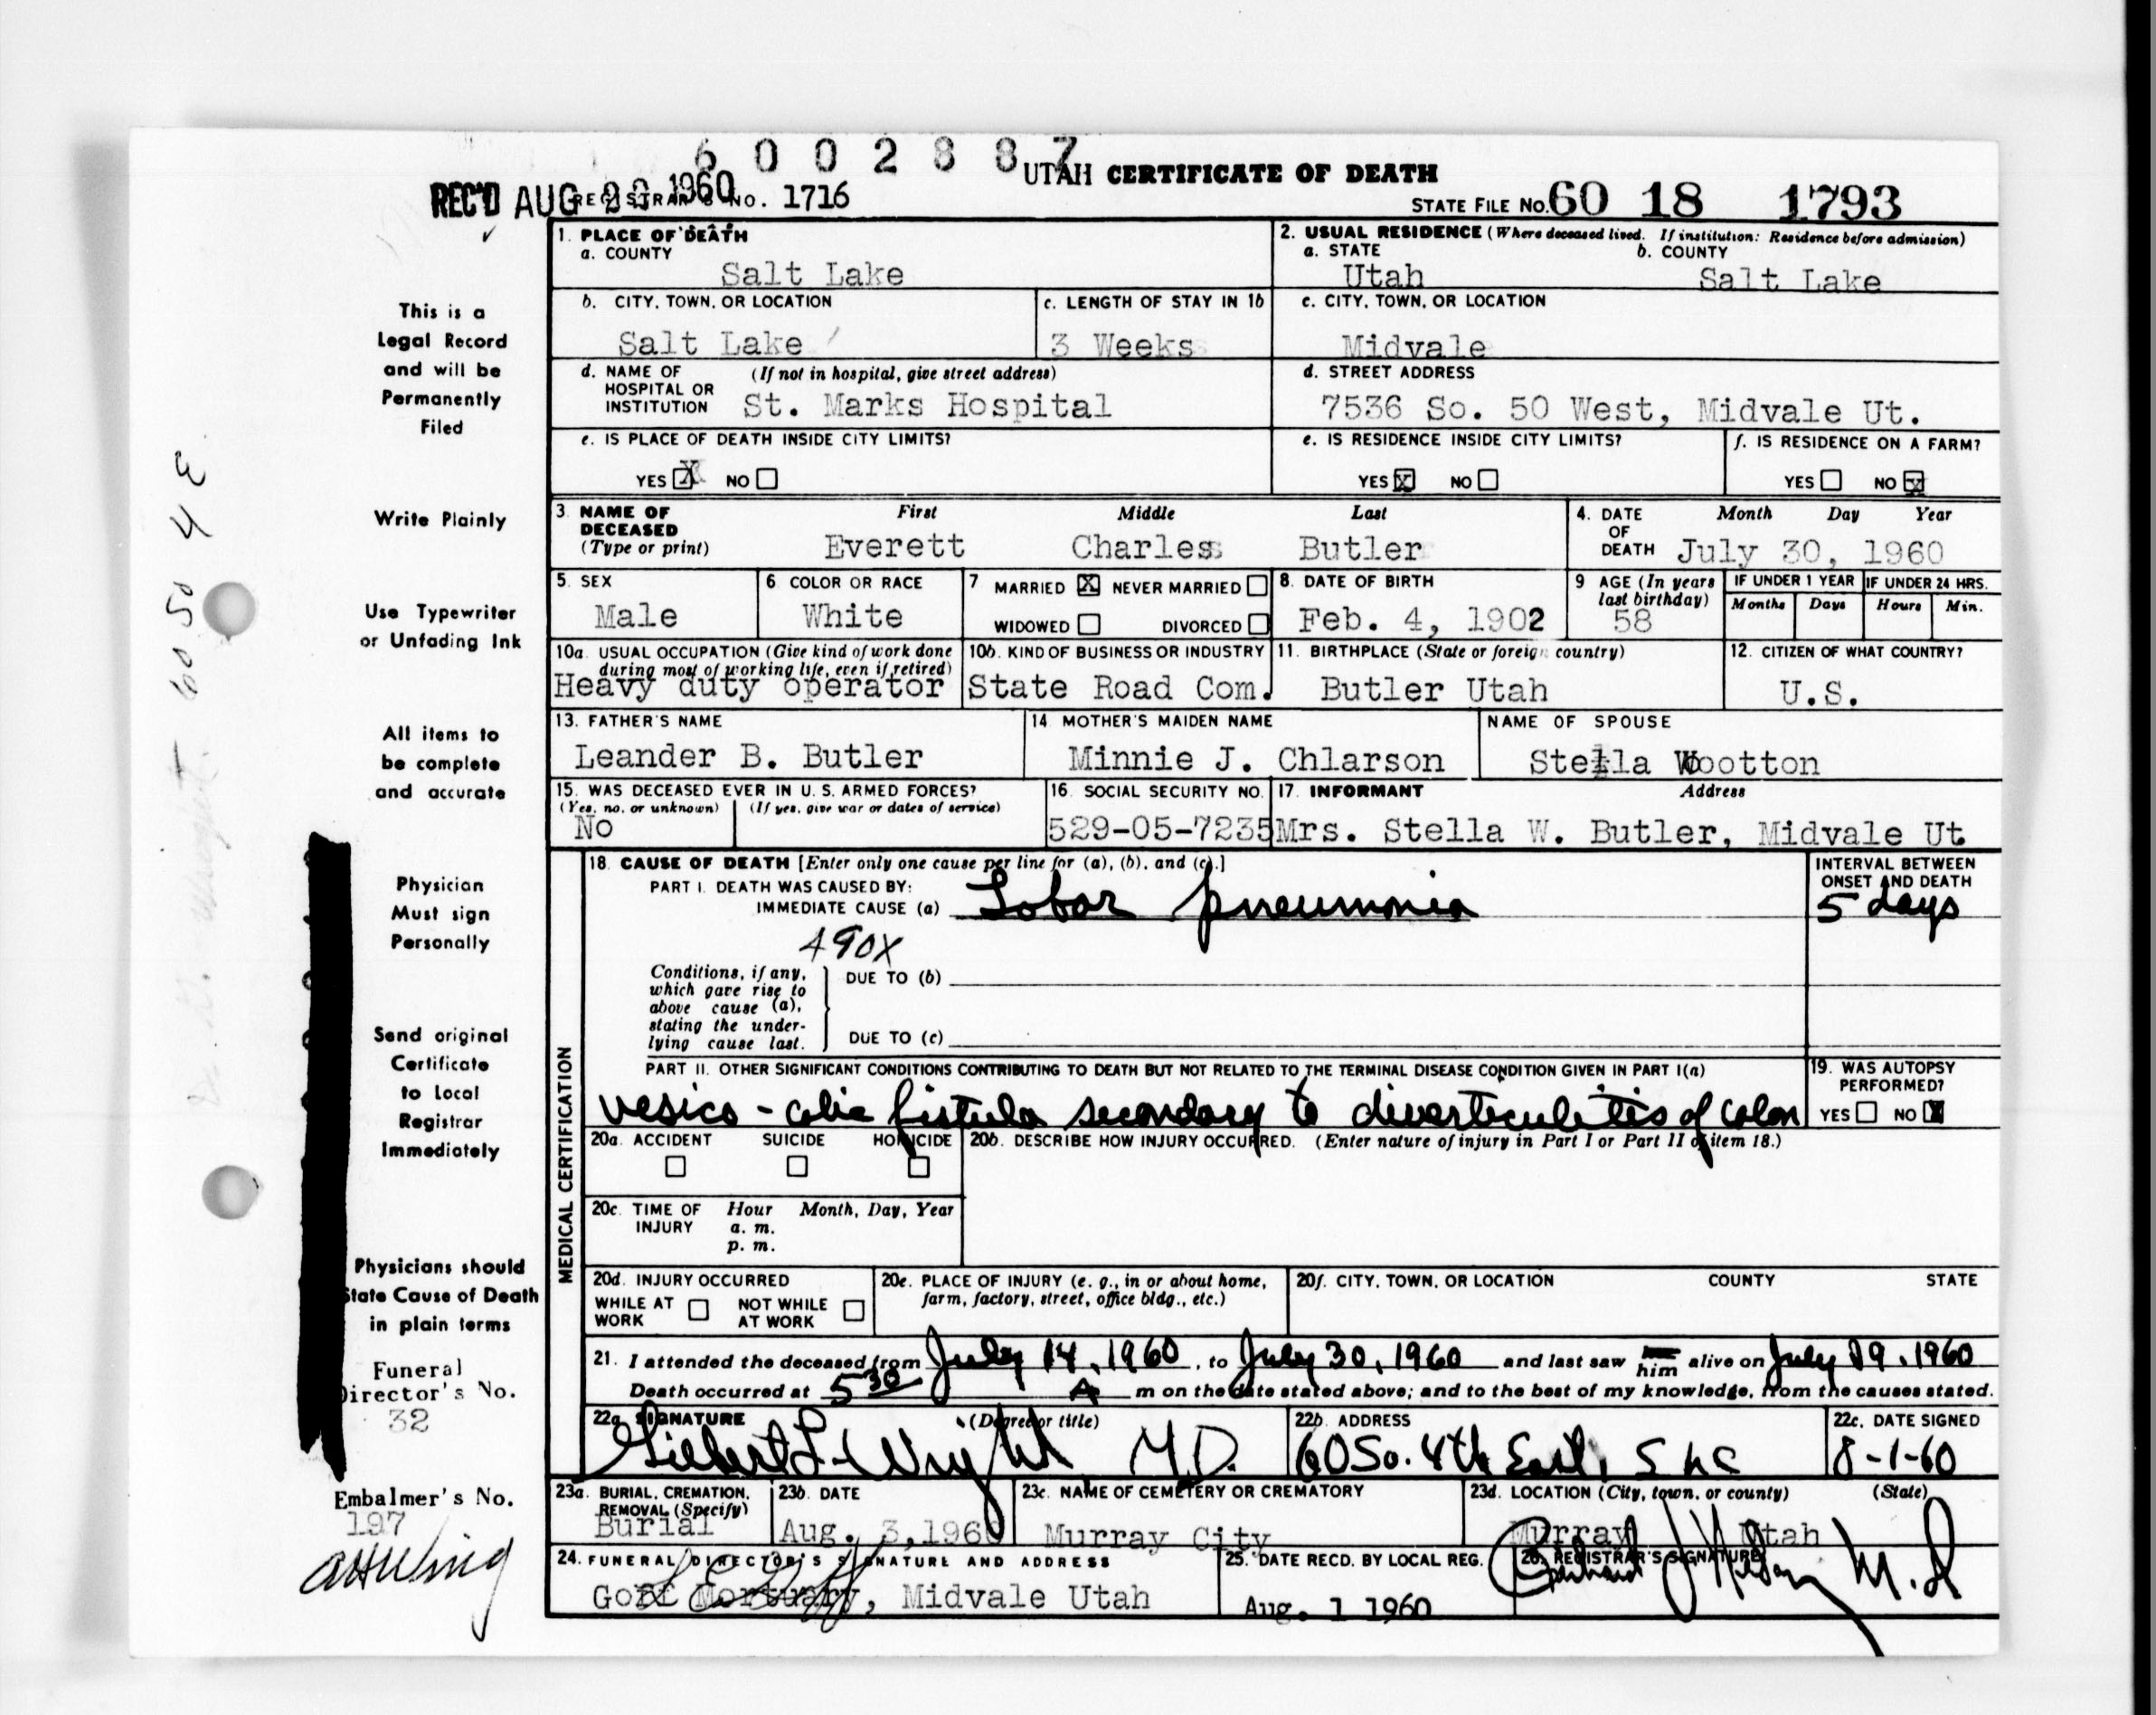 6002887
UTAH CERTIFICATE OF DEATH
REC'D AUG 1960 REGISTRAR'S NO. 1716
STATE FILE NO. 60 18 1793
1. PLACE OF DEATH
a. COUNTY
Salt Lake
2. USUAL RESIDENCE (Where deceased lived. If institution: Residence before admission)
a. STATE b. COUNTY
Utah Salt Lake
b. CITY, TOWN, OR LOCATION
Salt Lake
c. LENGTH OF STAY IN 1b
3 Weeks
c. CITY, TOWN, OR LOCATION
Midvale
d. NAME OF (If not in hospital, give street address)
HOSPITAL OR
INSTITUTION St. Marks Hospital
d. STREET ADDRESS
7536 So. 50 West, Midvale Ut.
e. IS PLACE OF DEATH INSIDE CITY LIMITS?
YES X NO
e. IS RESIDENCE INSIDE CITY LIMITS?
YES X NO
f. IS RESIDENCE ON A FARM?
YES NO X
3. NAME OF First Middle Last
DECEASED
(Type or print) Everett Charles Butler
4. DATE Month Day Year
OF
DEATH July 30, 1960
5. SEX
Male
6. COLOR OR RACE
White
7 MARRIED X NEVER MARRIED
WIDOWED DIVORCED
8. DATE OF BIRTH
Feb. 4, 1902
9 AGE (In years
last birthday)
58
IF UNDER 1 YEAR IF UNDER 24 HRS.
Months Days Hours Min.
10a. USUAL OCCUPATION (Give kind of work done
during most of working life, even if retired)
Heavy duty operator
10b. KIND OF BUSINESS OR INDUSTRY
State Road Com.
11. BIRTHPLACE (State or foreign country)
Butler Utah
12. CITIZEN OF WHAT COUNTRY?
U.S.
13. FATHER'S NAME
Leander B. Butler
14 MOTHER'S MAIDEN NAME
Minnie J. Chlarson
NAME OF SPOUSE
Stella Wootton
15. WAS DECEASED EVER IN U.S. ARMED FORCES?
(Yes, no, or unknown) (If yes, give war or dates of service)
No
16. SOCIAL SECURITY NO.
529-05-7235
17. INFORMANT Address
Mrs. Stella W. Butler, Midvale Ut
18. CAUSE OF DEATH [Enter only one cause per line for (a), (b), and (c).]
PART I. DEATH WAS CAUSED BY:
IMMEDIATE CAUSE (a) Lobar pneumonia
INTERVAL BETWEEN
ONSET AND DEATH
5 days
490X
Conditions, if any,
which gave rise to
above cause (a),
stating the under-
lying cause last.
DUE TO (b)
DUE TO (c)
PART II. OTHER SIGNIFICANT CONDITIONS CONTRIBUTING TO DEATH BUT NOT RELATED TO THE TERMINAL DISEASE CONDITION GIVEN IN PART I(a)
vesico-colic fistula secondary to diverticulitis of colon
19. WAS AUTOPSY
PERFORMED?
YES NO X
20a. ACCIDENT SUICIDE HOMICIDE
20b. DESCRIBE HOW INJURY OCCURRED. (Enter nature of injury in Part I or Part II of item 18.)
20c. TIME OF Hour Month, Day, Year
INJURY a. m.
p. m.
20d. INJURY OCCURRED
WHILE AT NOT WHILE
WORK AT WORK
20e. PLACE OF INJURY (e. g., in or about home,
farm, factory, street, office bldg., etc.)
20f. CITY, TOWN, OR LOCATION COUNTY STATE
21. I attended the deceased from July 14, 1960, to July 30, 1960 and last saw him alive on July 29, 1960
Death occurred at 5 30 A m on the date stated above; and to the best of my knowledge, from the causes stated.
22a. SIGNATURE (Degree or title)
Gilbert L. Wright M.D.
22b. ADDRESS
60 So. 4th East, SLC
22c. DATE SIGNED
8-1-60
23a. BURIAL, CREMATION,
REMOVAL (Specify)
Burial
23b. DATE
Aug. 3, 1960
23c. NAME OF CEMETERY OR CREMATORY
Murray City
23d. LOCATION (City, town, or county) (State)
Murray Utah
24. FUNERAL DIRECTOR'S SIGNATURE AND ADDRESS
Goff Mortuary, Midvale Utah
25. DATE RECD. BY LOCAL REG.
Aug. 1 1960
26. REGISTRAR'S SIGNATURE
M.D
MEDICAL CERTIFICATION
This is a
Legal Record
and will be
Permanently
Filed
Write Plainly
Use Typewriter
or Unfading Ink
All items to
be complete
and accurate
Physician
Must sign
Personally
Send original
Certificate
to Local
Registrar
Immediately
Physicians should
State Cause of Death
in plain terms
Funeral
Director's No.
32
Embalmer's No.
197
60 50 4 E